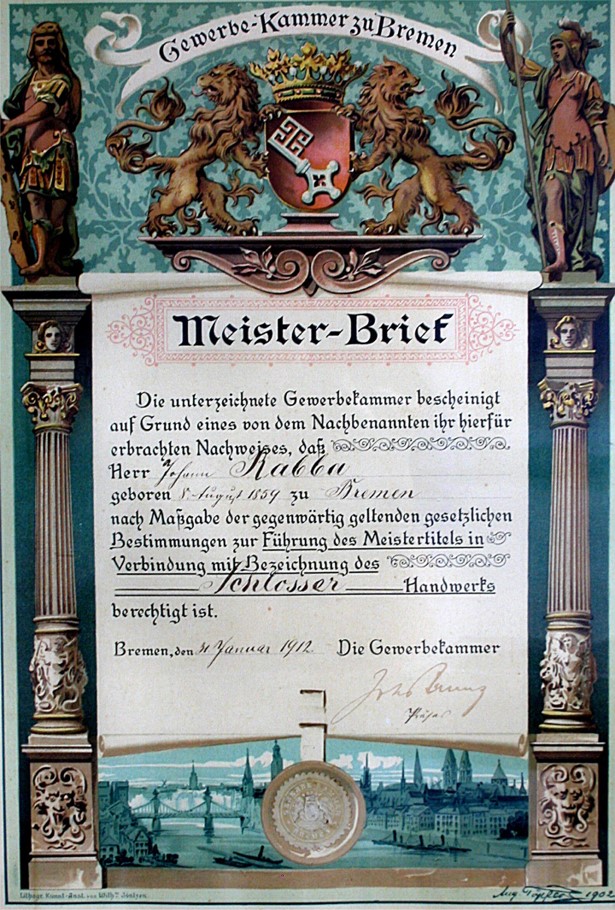 Gewerbe-Kammer zu Bremen
Meister-Brief
Die unterzeichnete Gewerbekammer bescheinigt
auf Grund eines von dem Nachbenannten ihr hierfür
erbrachten Nachweises, daß
Herr Johann Rabba
geboren 8. August 1859 zu Bremen
nach Maßgabe der gegenwärtig geltenden gesetzlichen
Bestimmungen zur Führung des Meistertitels in
Verbindung mit Bezeichnung des
Schlosser Handwerks
berechtigt ist.
Bremen, den Januar 1912 Die Gewerbekammer
Präses
Lithogr. Kunst-Anst. von Willy. Jöntzen.
Aug. 1902